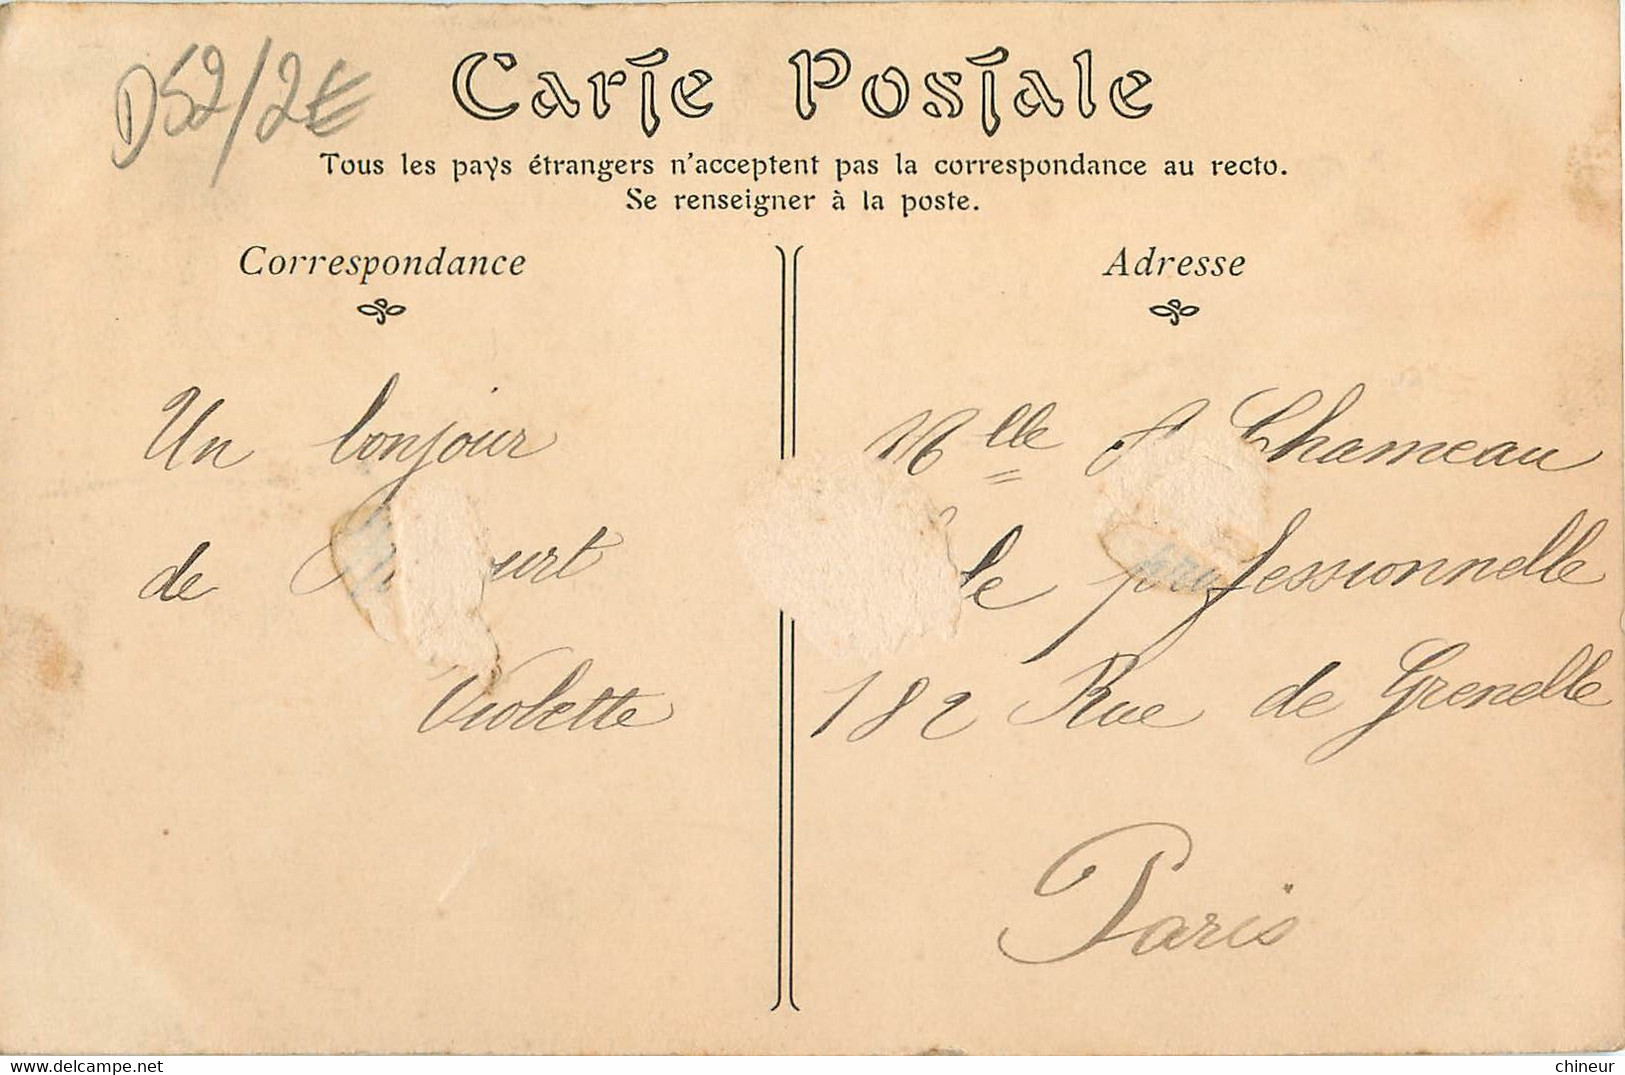 D52/2€
Carte Postale
Tous les pays étrangers n'acceptent pas la correspondance au recto.
Se renseigner à la poste.
Correspondance
Un bonjour
de
Violette
Adresse
Mlle Chameau
professionnelle
182 Rue de Grenelle
Paris
https://www.delcampe.net
chineur